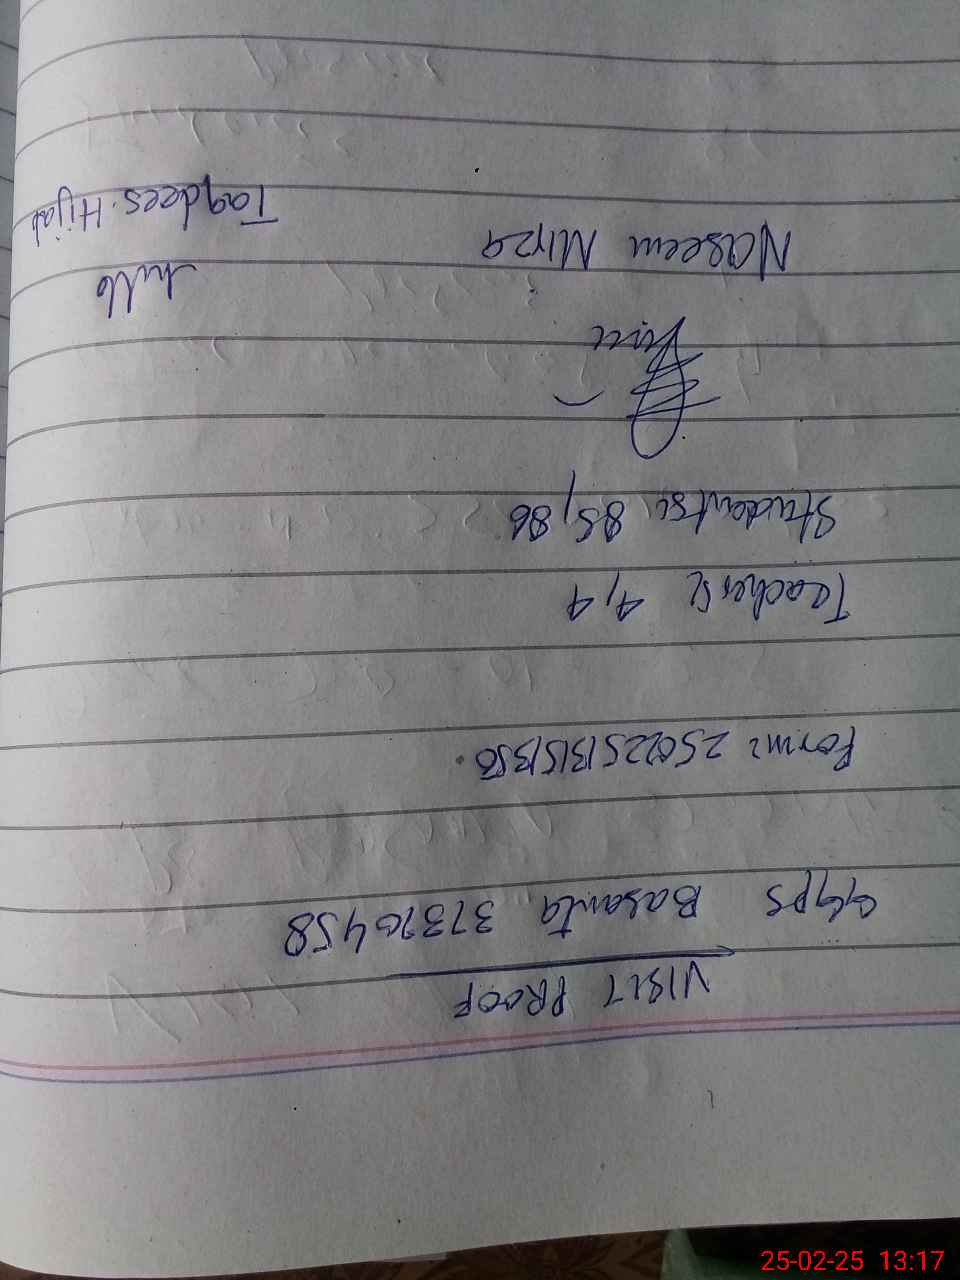 VISIT PROOF
GGPS Basanta 37370458
Form: 25022513151350
Teachers: 4,4
Students: 85,86
Naseem Mirza
Taqdees Hijab
25-02-25 13:17